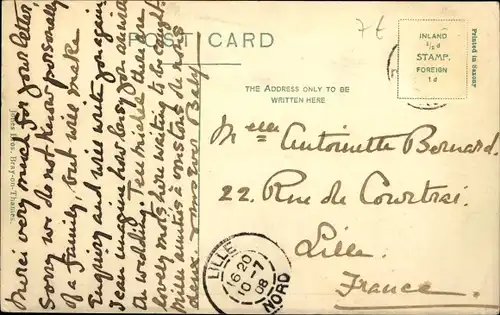 POST CARD
INLAND
½d
STAMP.
FOREIGN
1d
Printed in Saxony
7t
THE ADDRESS ONLY TO BE
WRITTEN HERE
Jones Bros, Bray-on-Thames.
Merci very much for your letter,
Sorry we do not know personally
of a family, but will make
Enquiry and will write you again
I can imagine how busy you are
on wedding. Tell Michel there are
lovely mots here waiting to be
Mille amitiés à vous tous de nous
deux.
Melle Antoinette Bernard.
22. Rue de Courtrai.
Lille.
France.
LILLE
16 20
10 - 7
08
NORD